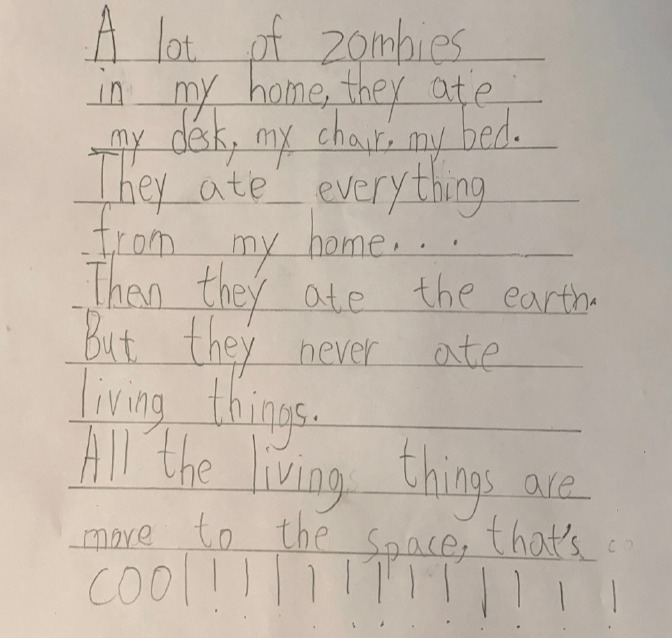 A lot of zombies
in my home, they ate
my desk, my chair, my bed.
They ate everything
from my home...
Then they ate the earth.
But they never ate
living things.
All the living things are
move to the space, that's
COOl!!!!!!!!!!!!!